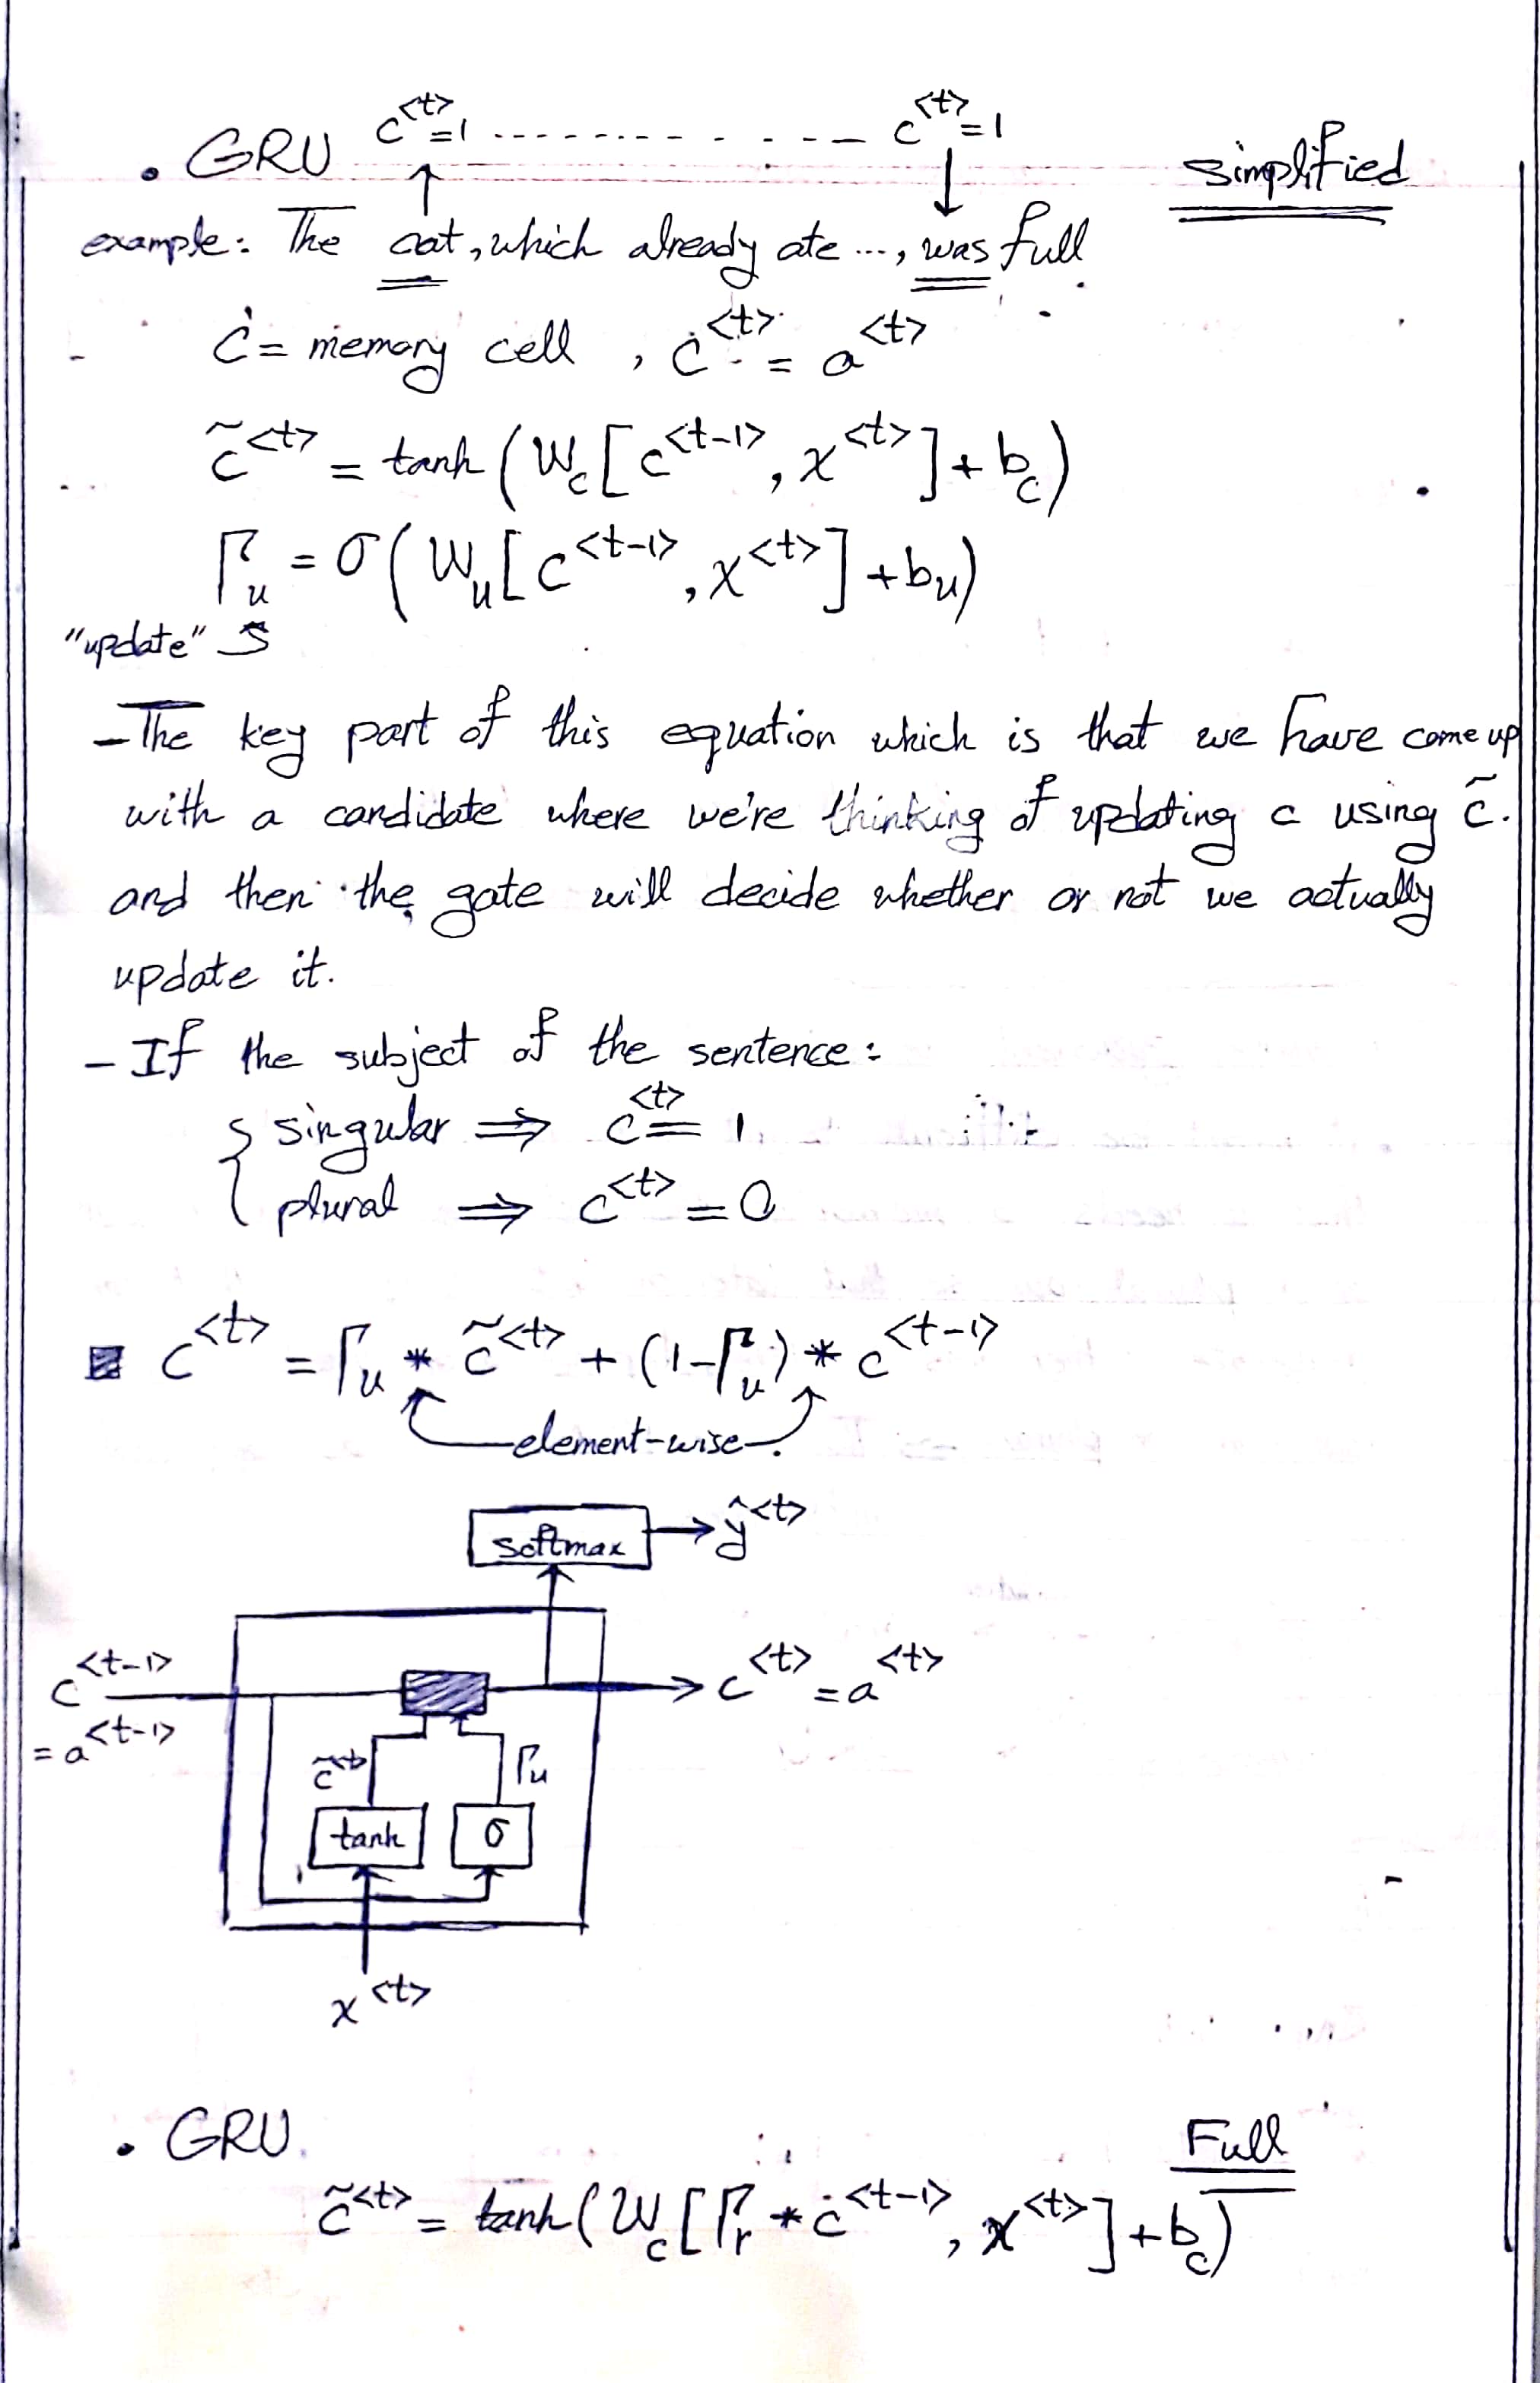 c^<t> = 1 ---------- c^<t> = 1
. GRU simplified
example: The cat, which already ate ..., was full.
c = memory cell , c^<t> = a^<t>
c̃^<t> = tanh(W_c[c^<t-1>, x^<t>] + b_c)
Γ_u = σ(W_u[c^<t-1>, x^<t>] + b_u)
"update"
- The key part of this equation which is that we have come up
with a candidate where we're thinking of updating c using c̃.
and then the gate will decide whether or not we actually
update it.
- If the subject of the sentence:
{ singular ⇒ c^<t> = 1
plural ⇒ c^<t> = 0
c^<t> = Γ_u * c̃^<t> + (1-Γ_u) * c^<t-1>
element-wise
softmax → ŷ^<t>
c^<t-1>
= a^<t-1>
c^<t> = a^<t>
c̃^<t> Γ_u
tanh σ
x^<t>
. GRU Full
c̃^<t> = tanh(W_c[Γ_r * c^<t-1>, x^<t>] + b_c)